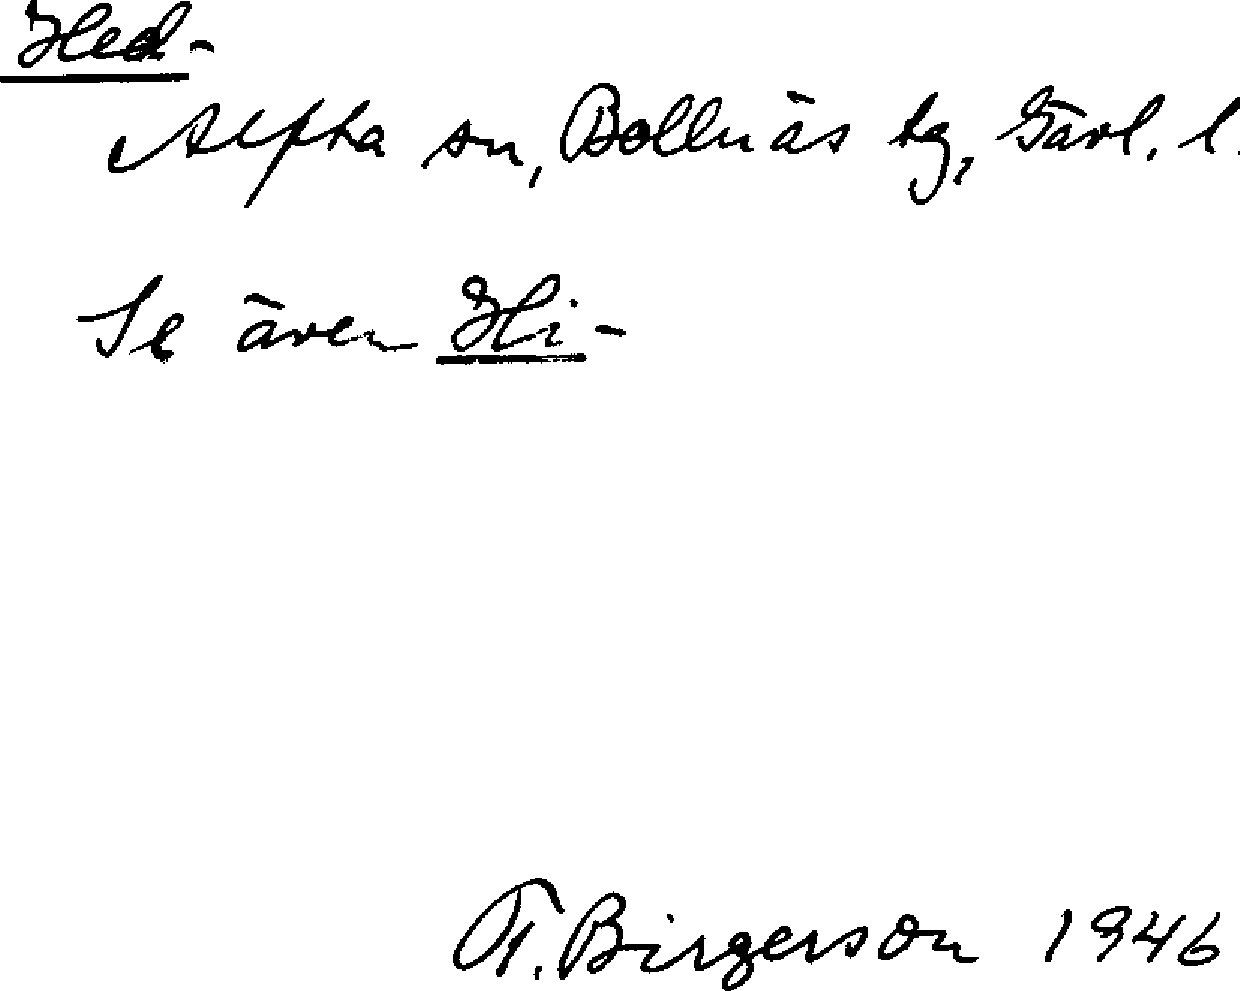 Hed-
Alfta sn, Bollnäs tg, Gävl. l.
Se även Hi-
T. Birgerson 1946